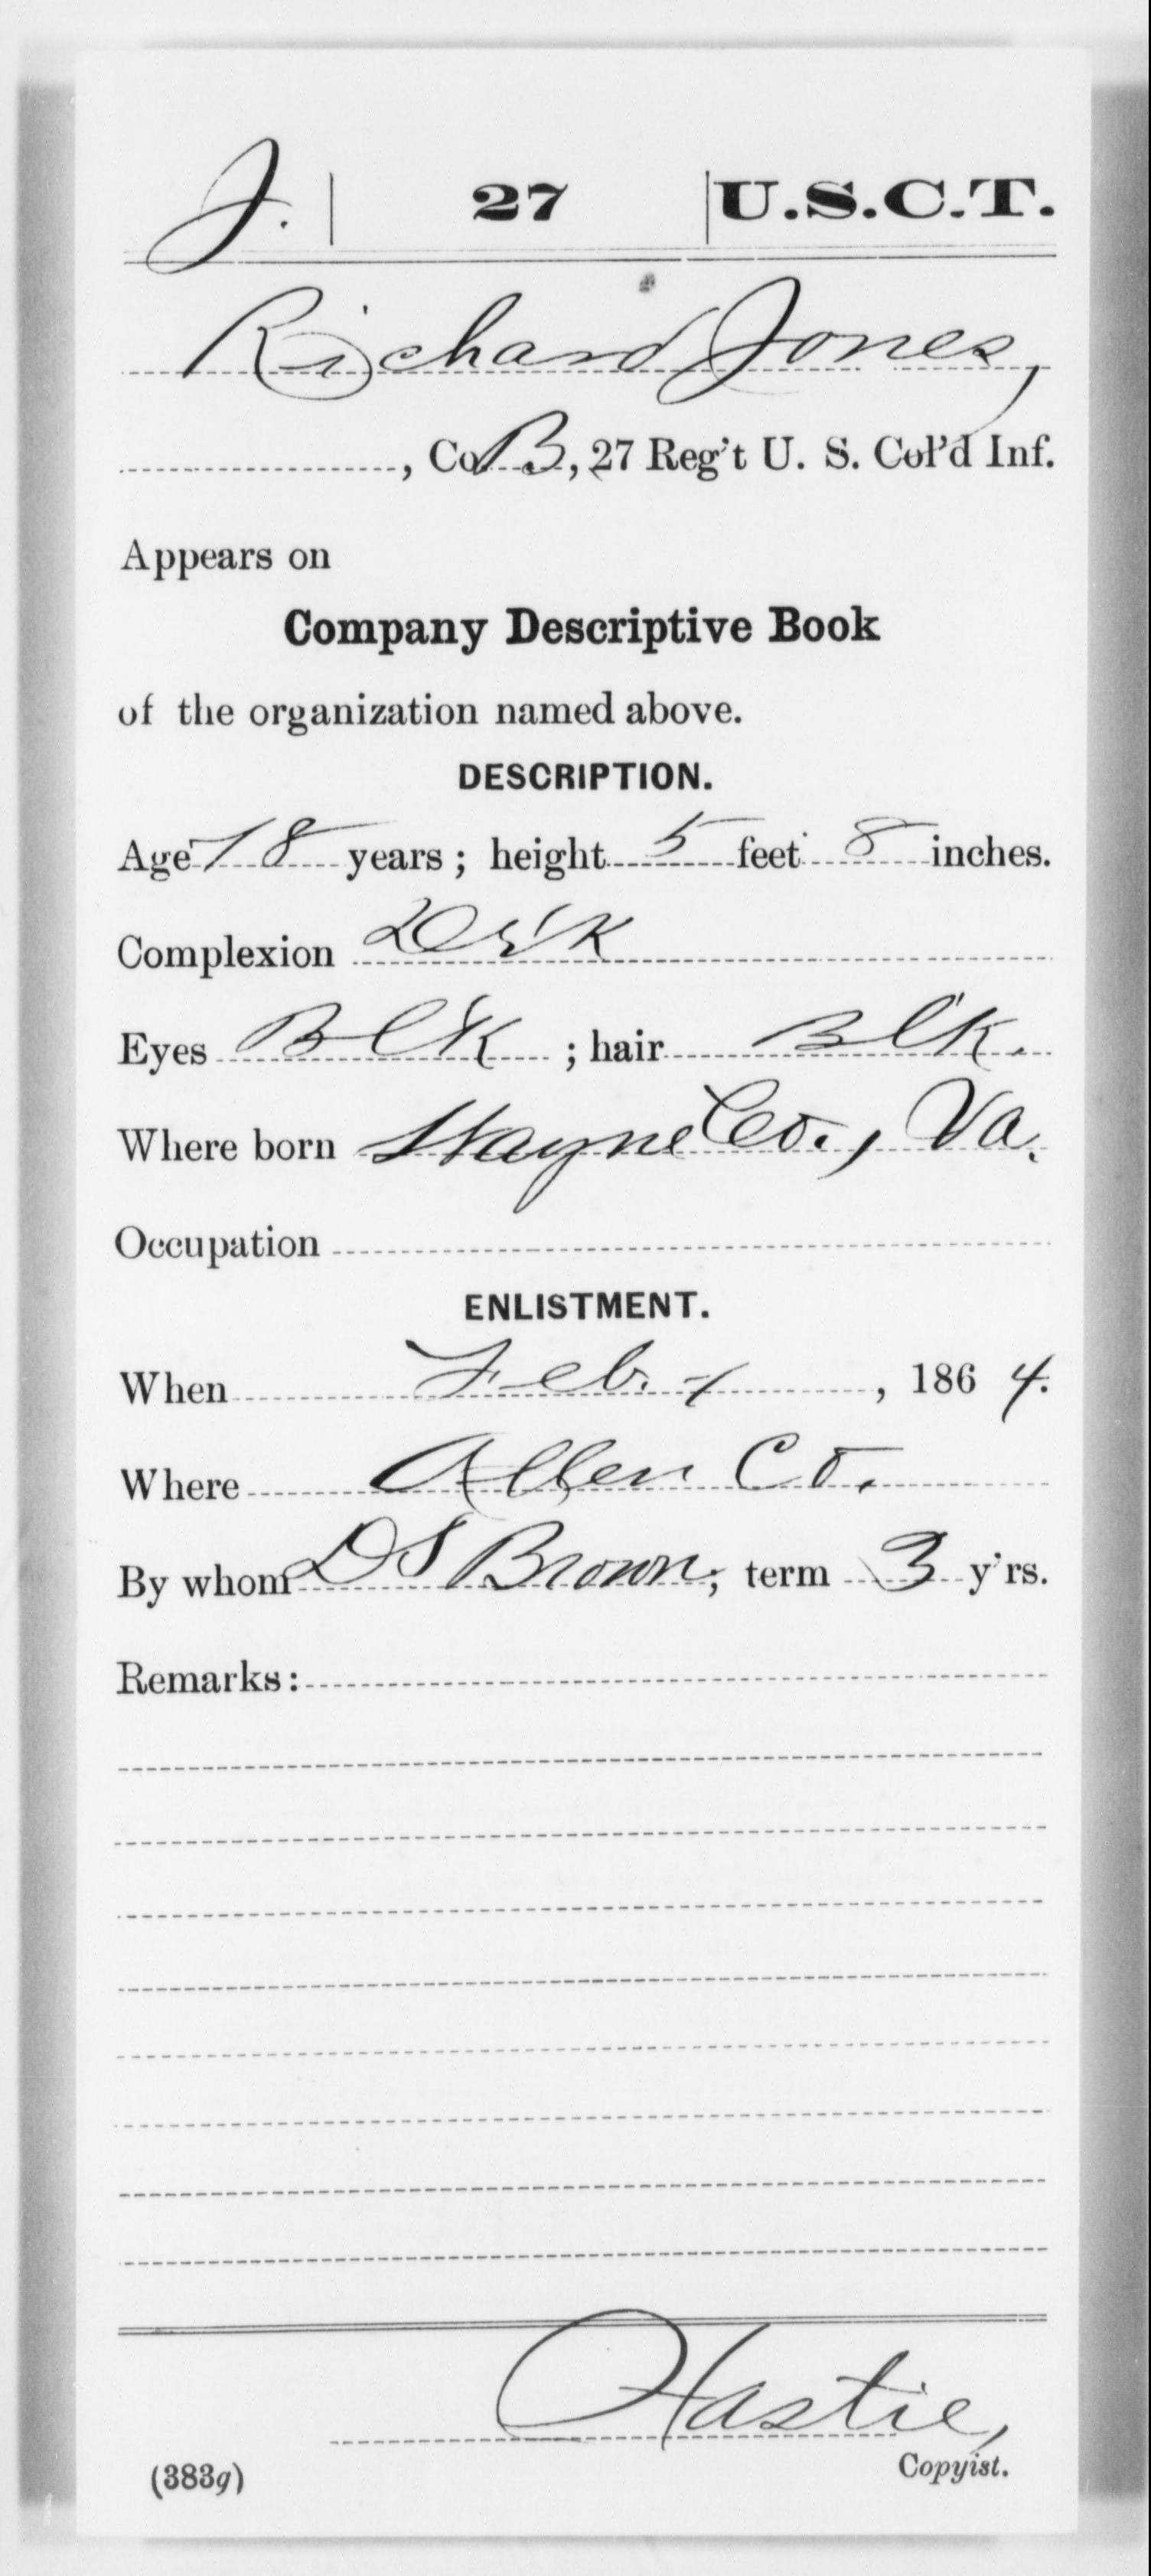 J. | 27 | U.S.C.T.
Richard Jones,
, Co. B, 27 Reg't U. S. Col'd Inf.
Appears on
Company Descriptive Book
of the organization named above.
DESCRIPTION.
Age 18 years; height 5 feet 8 inches.
Complexion Drk
Eyes Blk ; hair Blk.
Where born Wayne Co., Va.
Occupation
ENLISTMENT.
When Feb. 1, 1864.
Where Allen Co.
By whom D S Brown; term 3 y'rs.
Remarks:
Hastie,
(383g) Copyist.